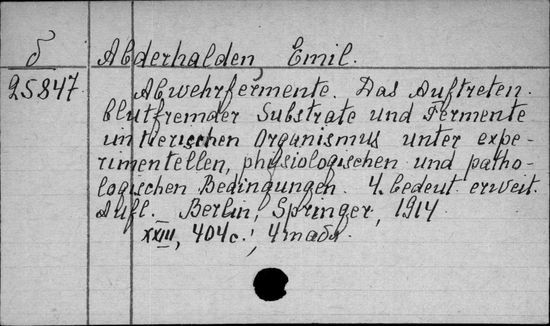 б Abderhalden, Emil.
25847. Abwehrfermente. Das Auftreten
blutfremder Substrate und Fermente
im tierischen Organismus unter expe-
rimentellen, physiologischen und patho-
logischen Bedingungen. 4. bedeut. erweit.
Aufl. Berlin, Springer, 1914
XXIII, 404 с.; 4 табл.